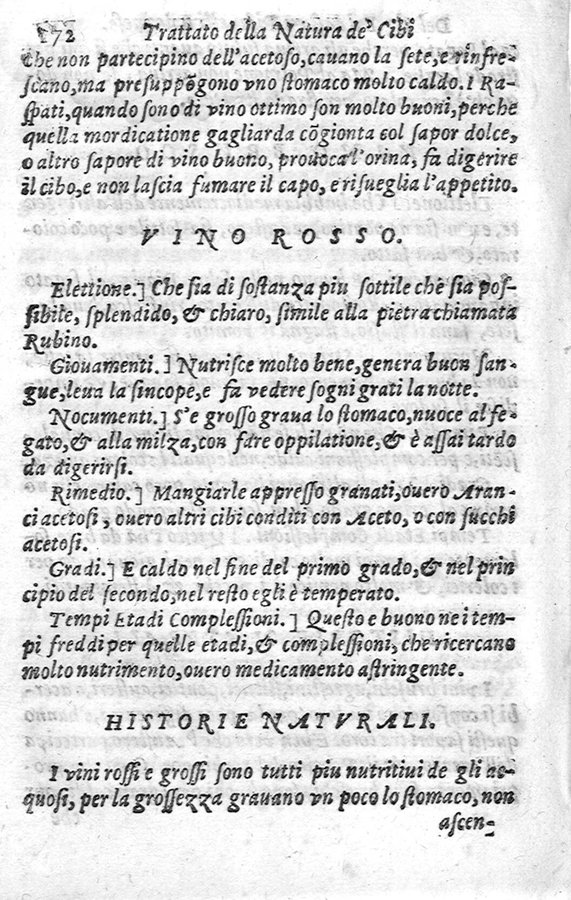 172 Trattato della Natura de' Cibi
che non partecipino dell'acetoso, cauano la sete, e rinfre-
scano, ma presuppõgono vno stomaco molto caldo. I Ra-
spati, quando sono di vino ottimo son molto buoni, perche
quella mordicatione gagliarda cõgionta col sapor dolce,
o altro sapore di vino buono, prouoca l'orina, fa digerire
il cibo, e non lascia fumare il capo, e risueglia l'appetito.
VINO ROSSO.
Elettione.] Che sia di sostanza piu sottile che sia pos-
sibile, splendido, & chiaro, simile alla pietra chiamata
Rubino.
Giouamenti.] Nutrisce molto bene, genera buon san-
gue, leua la sincope, e fa vedere sogni grati la notte.
Nocumenti.] S'e grosso graua lo stomaco, nuoce al fe-
gato, & alla milza, con fare oppilatione, & è assai tardo
da digerirsi.
Rimedio.] Mangiarle appresso granati, ouero Aran-
ci acetosi, ouero altri cibi conditi con Aceto, o con succhi
acetosi.
Gradi.] E caldo nel fine del primo grado, & nel prin
cipio del secondo, nel resto egli è temperato.
Tempi Etadi Complessioni.] Questo e buono ne i tem-
pi freddi per quelle etadi, & complessioni, che ricercano
molto nutrimento, ouero medicamento astringente.
HISTORIE NATVRALI.
I vini rossi e grossi sono tutti piu nutritiui de gli ac-
quosi, per la grossezza grauano vn poco lo stomaco, non
ascen-